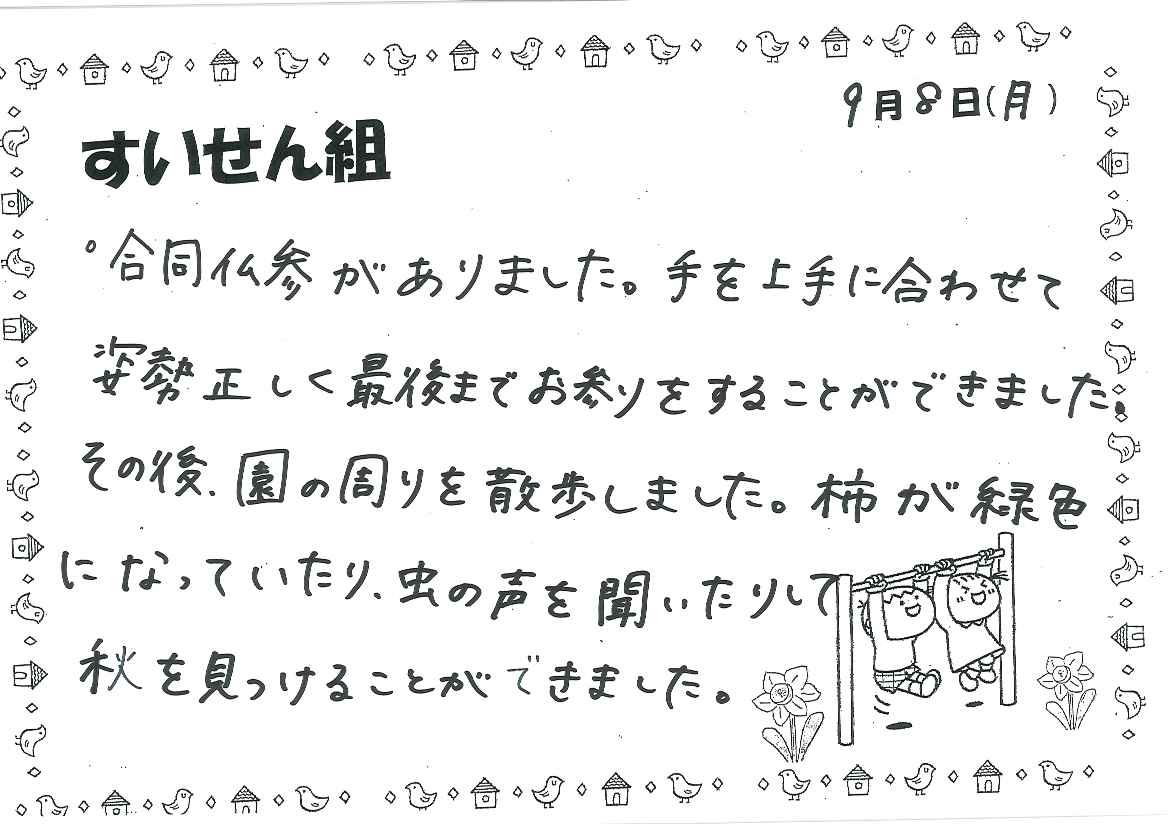 9月8日(月)
すいせん組
°合同仏参がありました。手を上手に合わせて
姿勢正しく最後までお参りをすることができました。
その後、園の周りを散歩しました。柿が緑色
になっていたり、虫の声を聞いたりして
秋を見つけることができました。